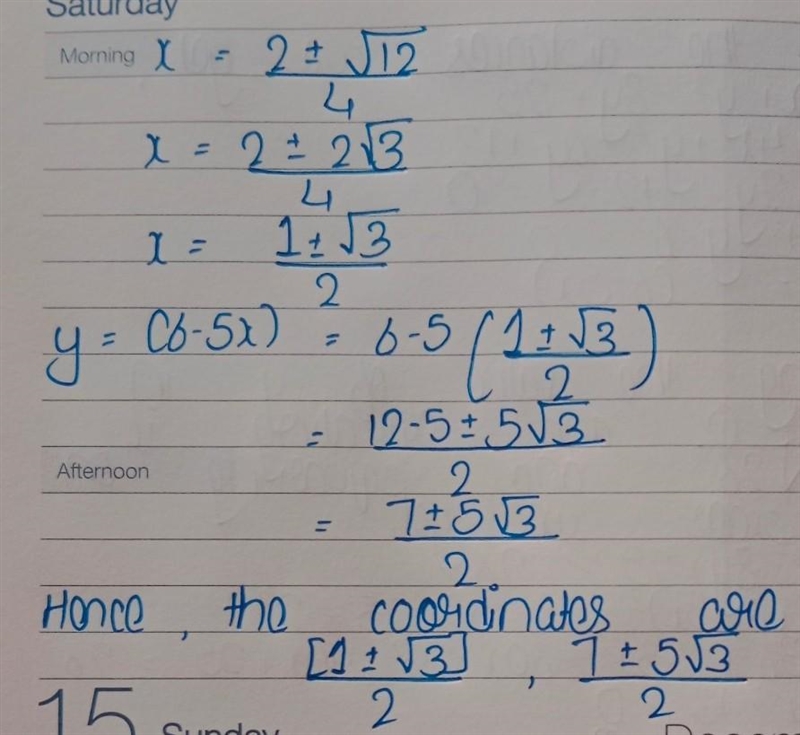 Saturday
Morning x = 2 ± √12 / 4
x = 2 ± 2√3 / 4
x = 1 ± √3 / 2
y = (6-5x) = 6-5 (1 ± √3 / 2)
= 12-5 ± 5√3 / 2
Afternoon
= 7 ± 5√3 / 2
Hence, the coordinates are
[1 ± √3] / 2 , 7 ± 5√3 / 2
15 Sunday